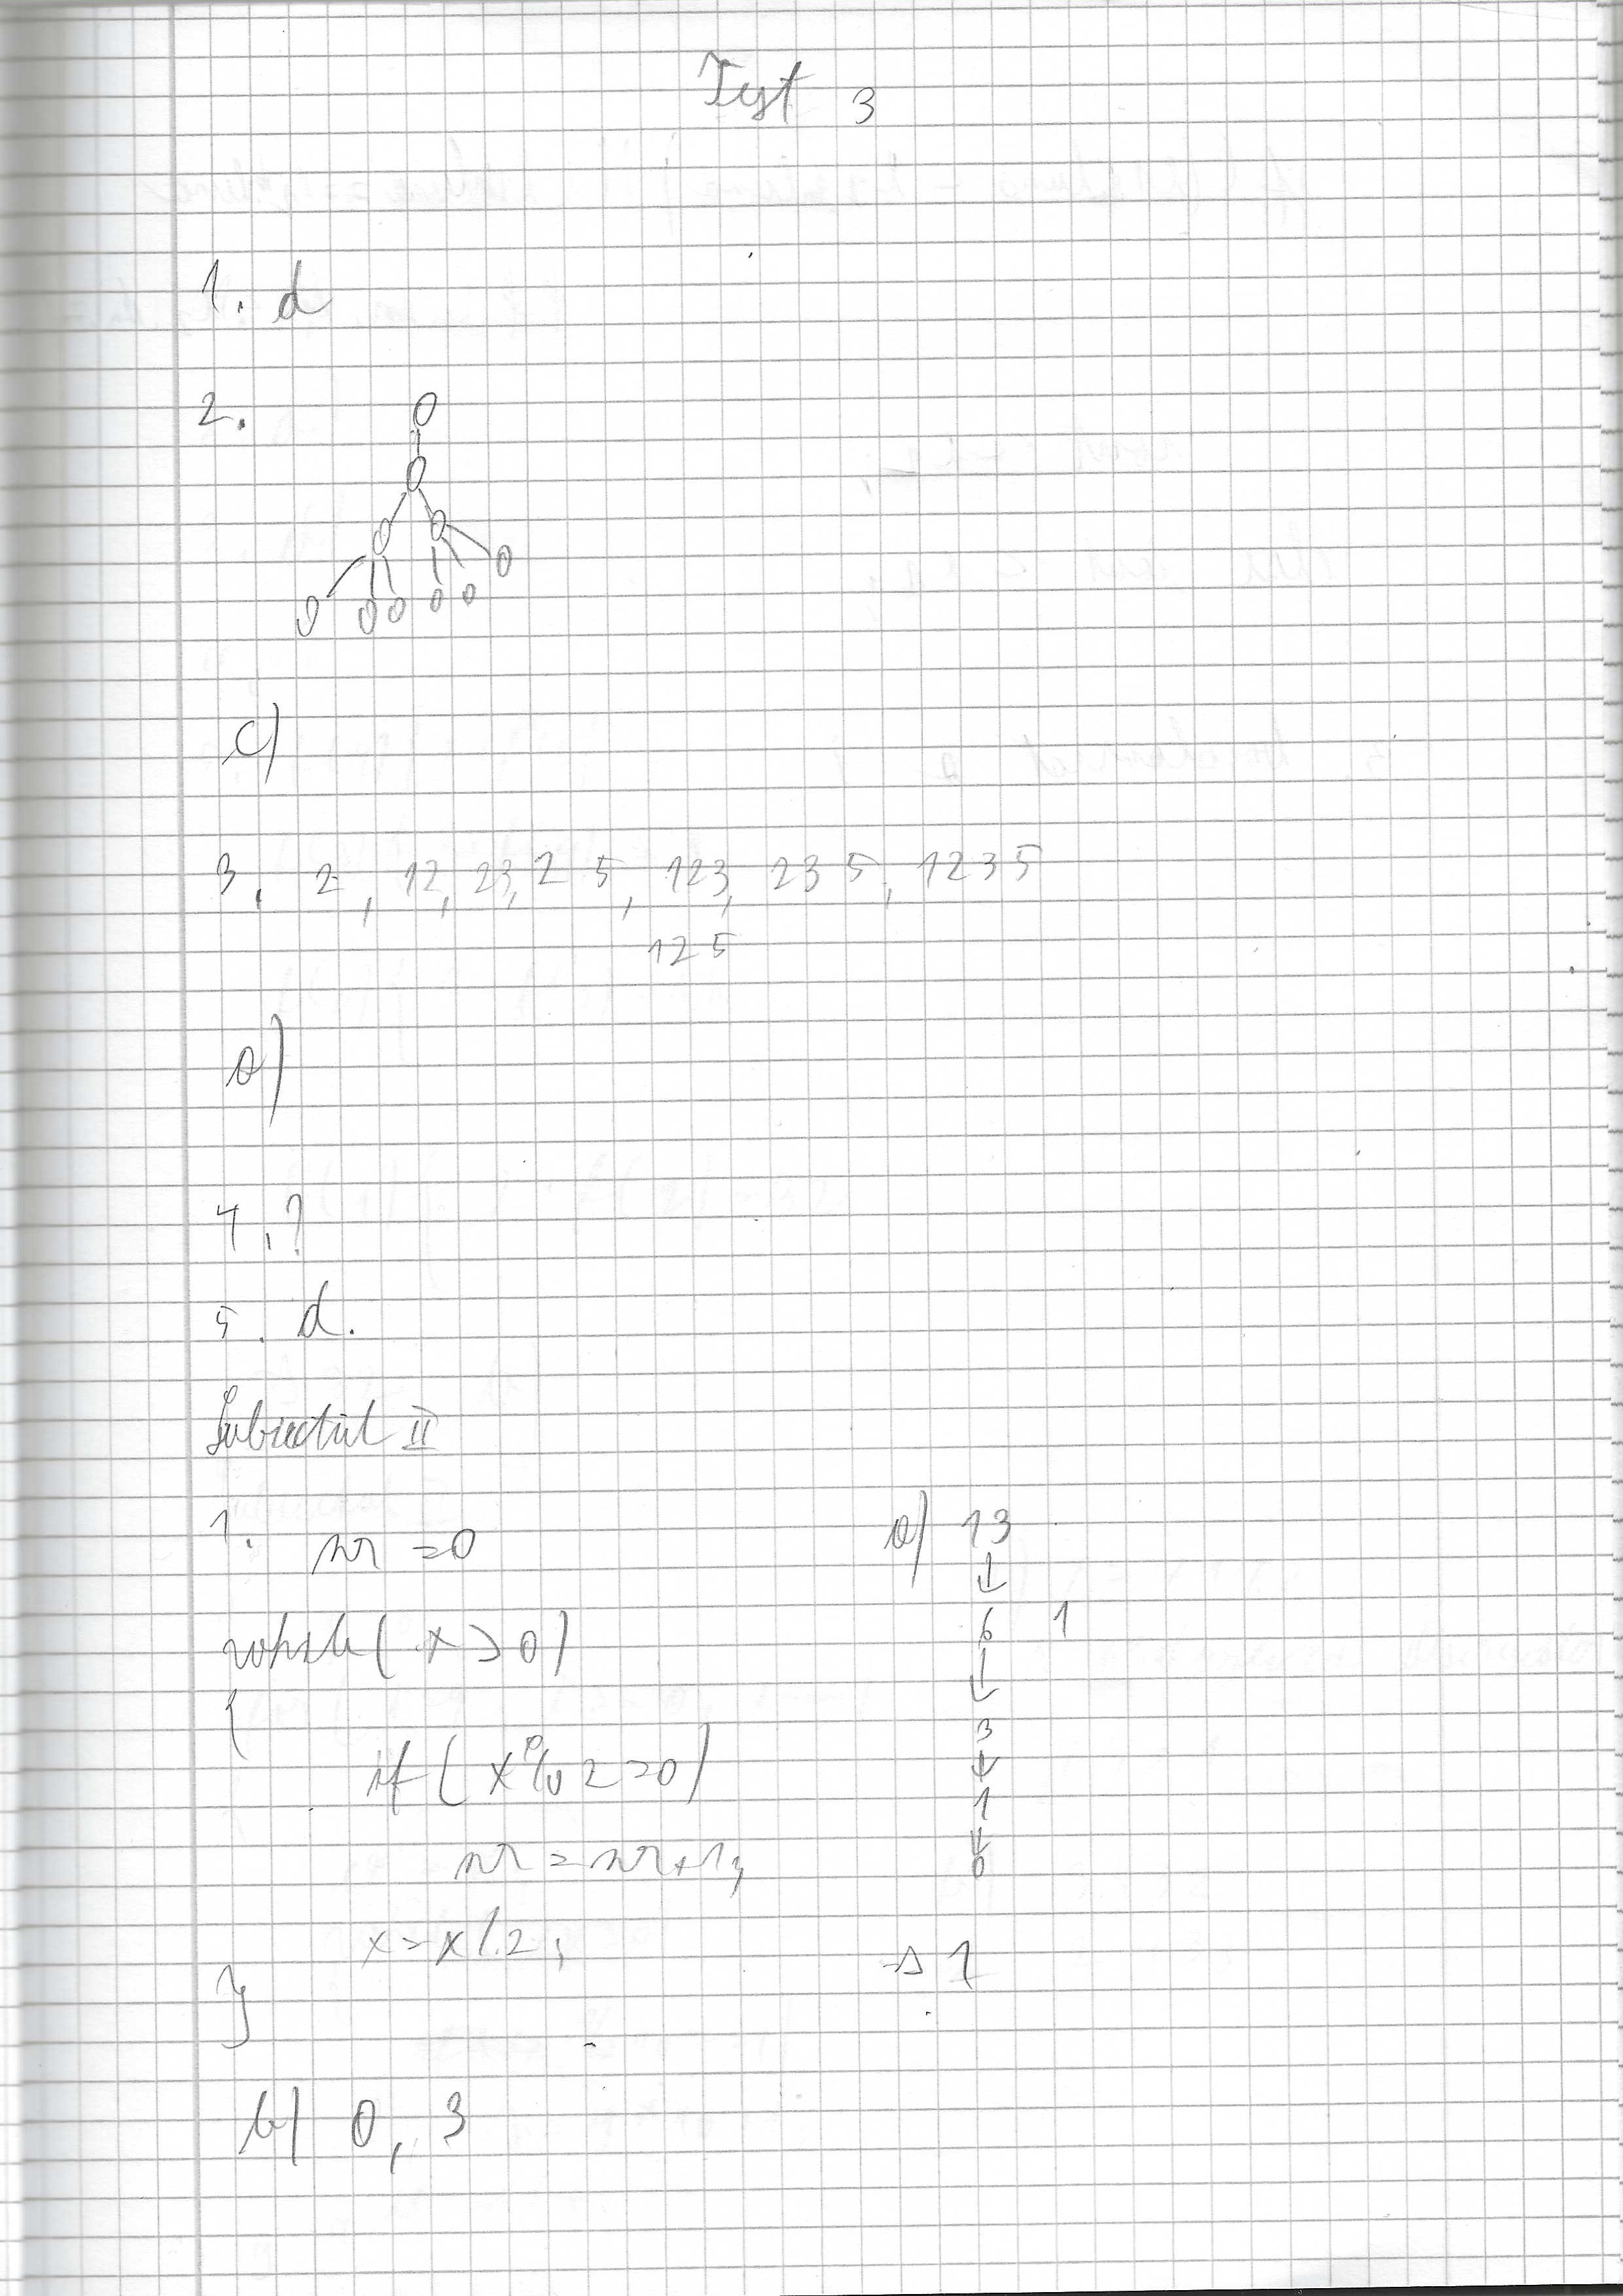 Test 3
1. d
2.
0
0
0 0
0 0 0 0 0 0
c)
3. 2, 12, 23, 2 5, 123, 23 5, 1235
125
a)
4. ?
5. d.
Subiectul II
1. nr = 0
while( x > 0)
{
if( x % 2 = 0)
nr = nr + 1;
x = x / 2;
}
a) 13
↓
6 1
↓
3
↓
1
↓
0
→ 1
b) 0, 3